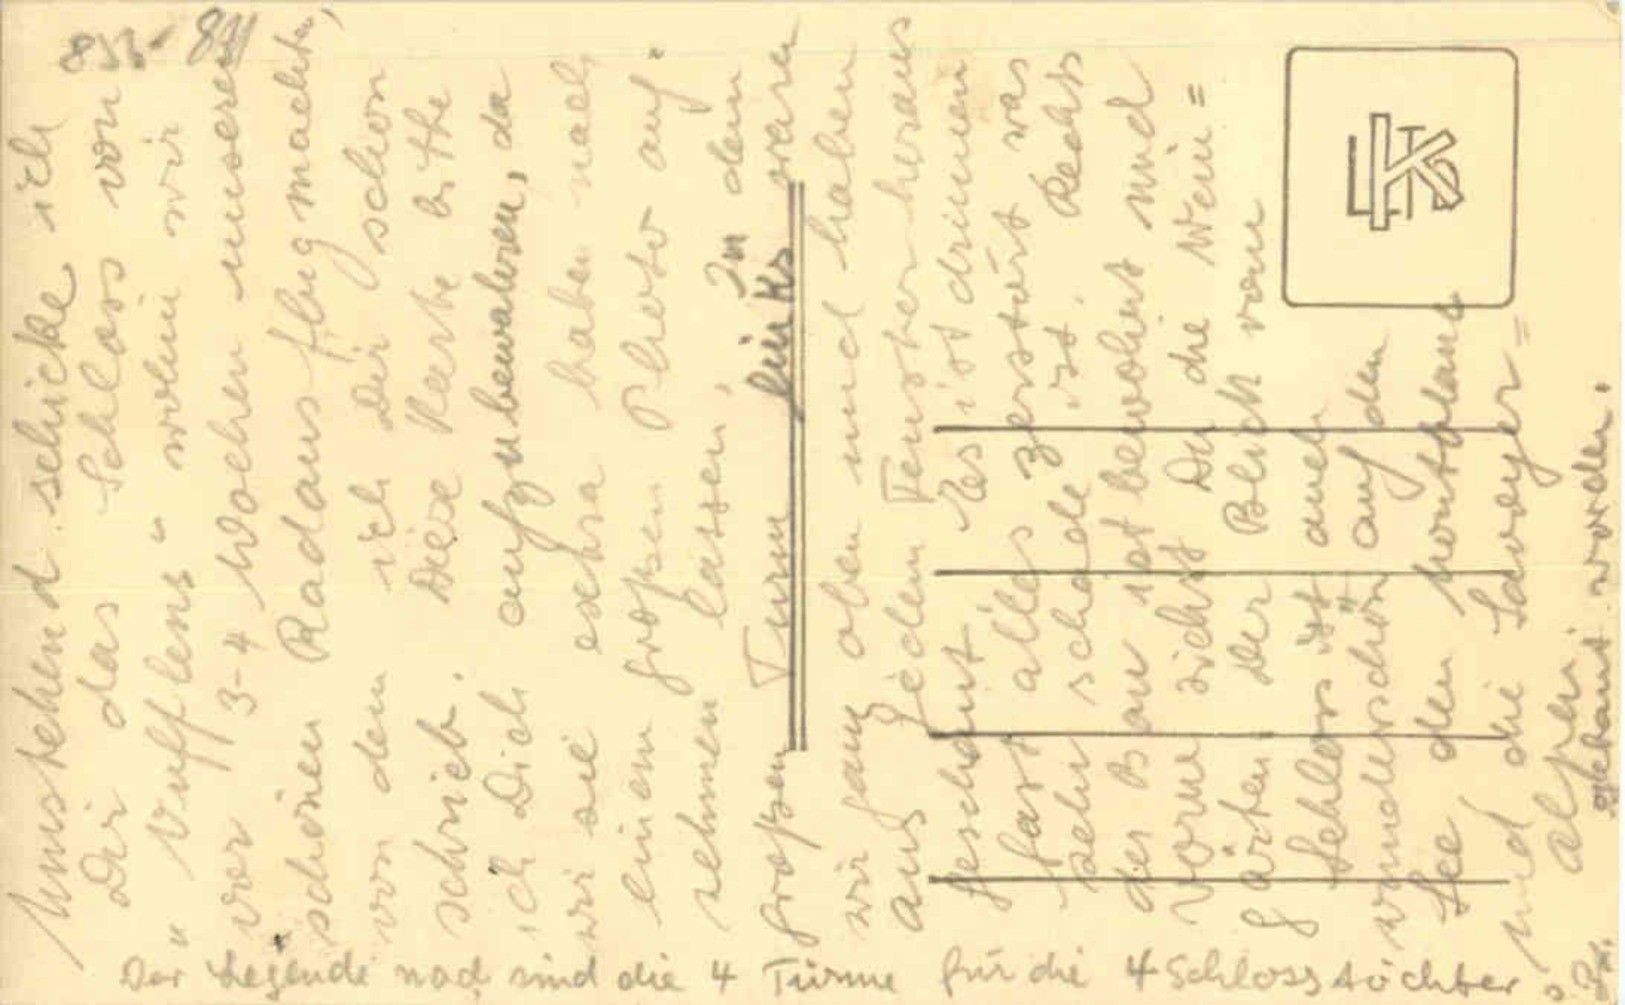 853- 811
Umstehend schicke ich
Dir das Schloss von
"Vufflens" wohin wir
vor 3-4 Wochen unseren
schönen Radausflug machten,
von dem ich Dir schon
schrieb. Diese Karte bitte
ich Dich aufzubewahren, da
wir sie extra haben nach
einem großen Photo auf-
nehmen lassen, In dem
großen Turm links waren
wir ganz oben und haben
aus jedem Fenster heraus
geschaut. Es ist drinnen
fast alles zerstört was
sehr schade ist. Rechts
der Bau ist bewohnt und
vorne siehst Du die Wein=
gärten. Der Blick vom
Schloss ist auch
wunderschön auf den
See den Montblanc
und die Savoyer=
alpen.
Der Legende nach sind die 4 Türme für die 4 Schlosstöchter
gebaut worden.